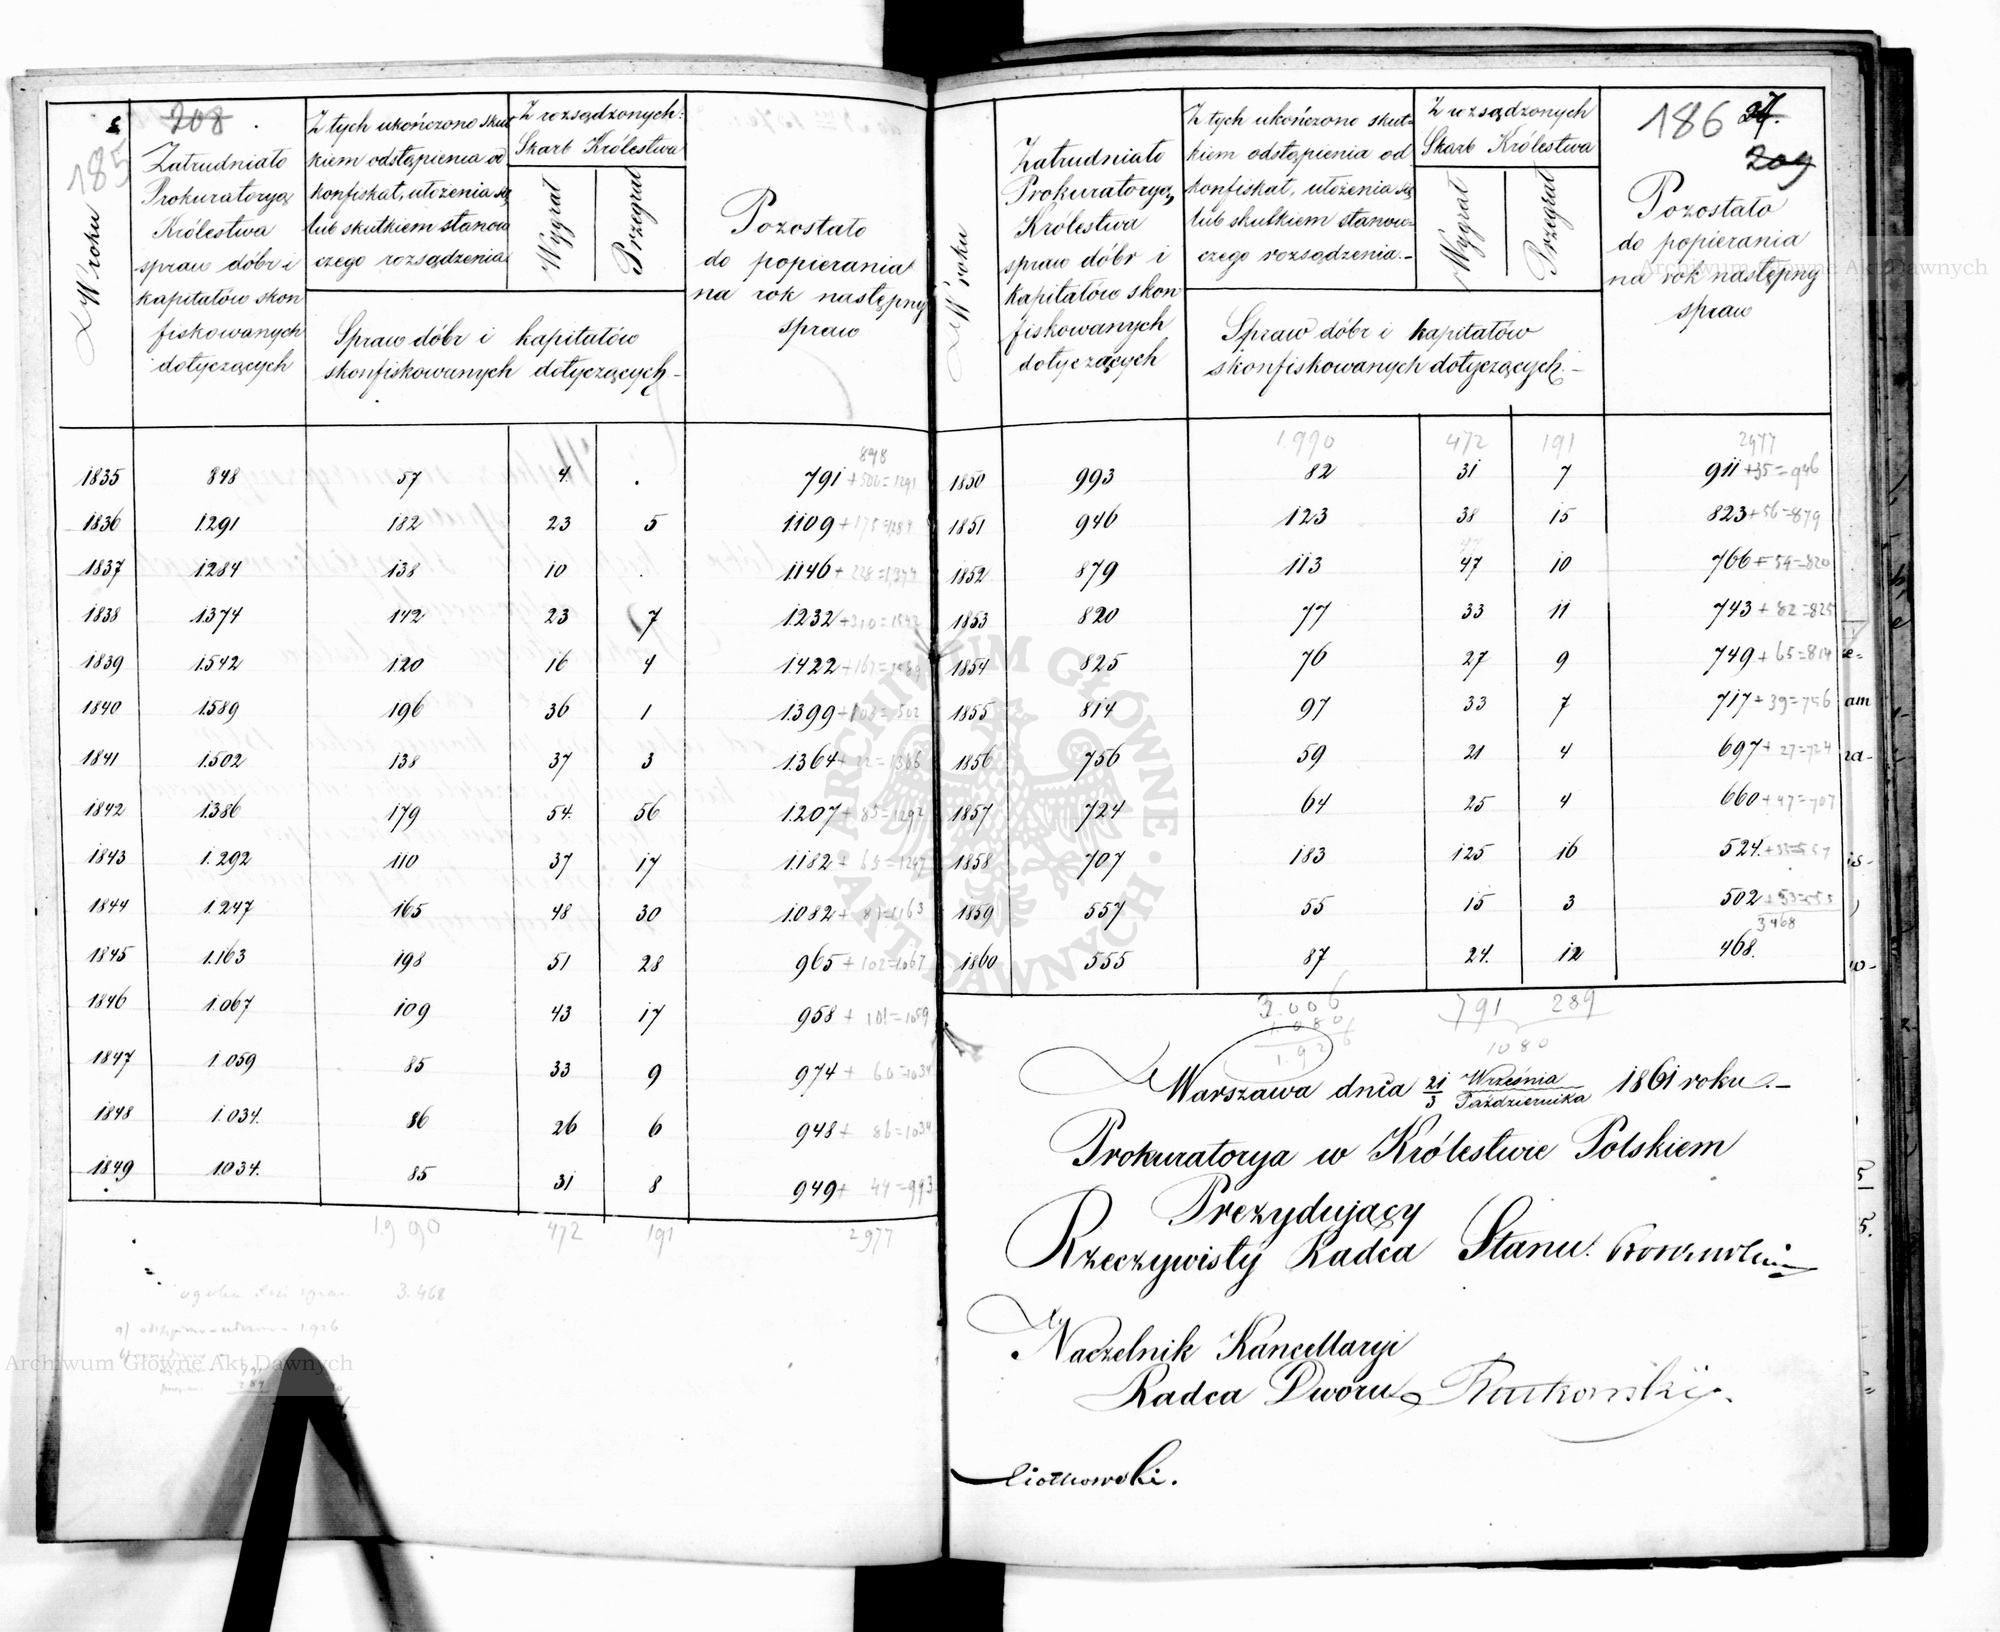 208
185
W roku
Zatrudniało
Prokuratoryą
Królestwa
spraw dóbr i
kapitałów skon
fiskowanych
dotyczących
Z tych ukończono skut
kiem odstąpienia od
konfiskat, ułożenia się
lub skutkiem stanow
czego rozsądzenia
Z rozsądzonych
Skarb Królestwa
Wygrał
Przegrał
Spraw dóbr i kapitałów
skonfiskowanych dotyczących
Pozostało
do popierania
na rok następny
spraw
848
1835 848 57 4. . 791 +500=1291
1836 1.291 182 23 5 1.109 +175=1284
1837 1.284 138 10 . 1.146 + 228=1,374
1838 1.374 142 23 7 1.232 +310=1542
1839 1.542 120 16 4 1.422 +167=1589
1840 1.589 196 36 1 1.399 +103=1502
1841 1.502 138 37 3 1.364 + 22=1386
1842 1.386 179 54. 56 1.207 + 85=1292
1843 1.292 110 37 17 1.182 + 65=1247
1844 1.247 165 48 30 1.082 + 81=1163
1845 1.163 198 51 28 965 + 102=1067
1846 1.067 109 43 17 958 + 101=1059
1847 1.059 85 33 9 974 + 60=1034
1848 1.034. 86 26 6 948 + 86=1034
1849 1.034. 85 31 8 949 + 44=993
1.990 472 191 2977
3.468
1926
186
209
W roku
Zatrudniało
Prokuratoryą
Królestwa
spraw dóbr i
kapitałów skon
fiskowanych
dotyczących
Z tych ukończono skut=
kiem odstąpienia od
konfiskat, ułożenia się
lub skutkiem stanow=
czego rozsądzenia.-
Z rozsądzonych
Skarb Królestwa
Wygrał
Przegrał
Spraw dóbr i kapitałów
skonfiskowanych dotyczących.-
Pozostało
do popierania
na rok następny
spraw
1.990 472 191 2977
1850 993 82 31 7 911 +35=946
1851 946 123 38 15 823 +56=879
1852 879 113 47 10 766 + 54=820
1853 820 77 33 11 743 + 82=825
1854 825 76 27 9 749 + 65=814
1855 814 97 33 7 717 + 39=756
1856 756 59 21 4 697 + 27=724
1857 724 64 25 4 660 +47=707
1858 707 183 125 16 524. +33=557
1859 557 55 15 3 502 +53=555
3468
1860 555 87 24. 12 468.
3.006 791 289
1.080 1080
1.926
Warszawa dnia 21/3 Września/Października 1861 roku.-
Prokuratorya w Królestwie Polskiem
Prezydujący
Rzeczywisty Radca Stanu.
Naczelnik Kancellaryi
Radca Dworu Rutkowski.
Archiwum Główne Akt Dawnych
Archiwum Główne Akt Dawnych
ARCHIWUM GŁÓWNE • AKT DAWNYCH •